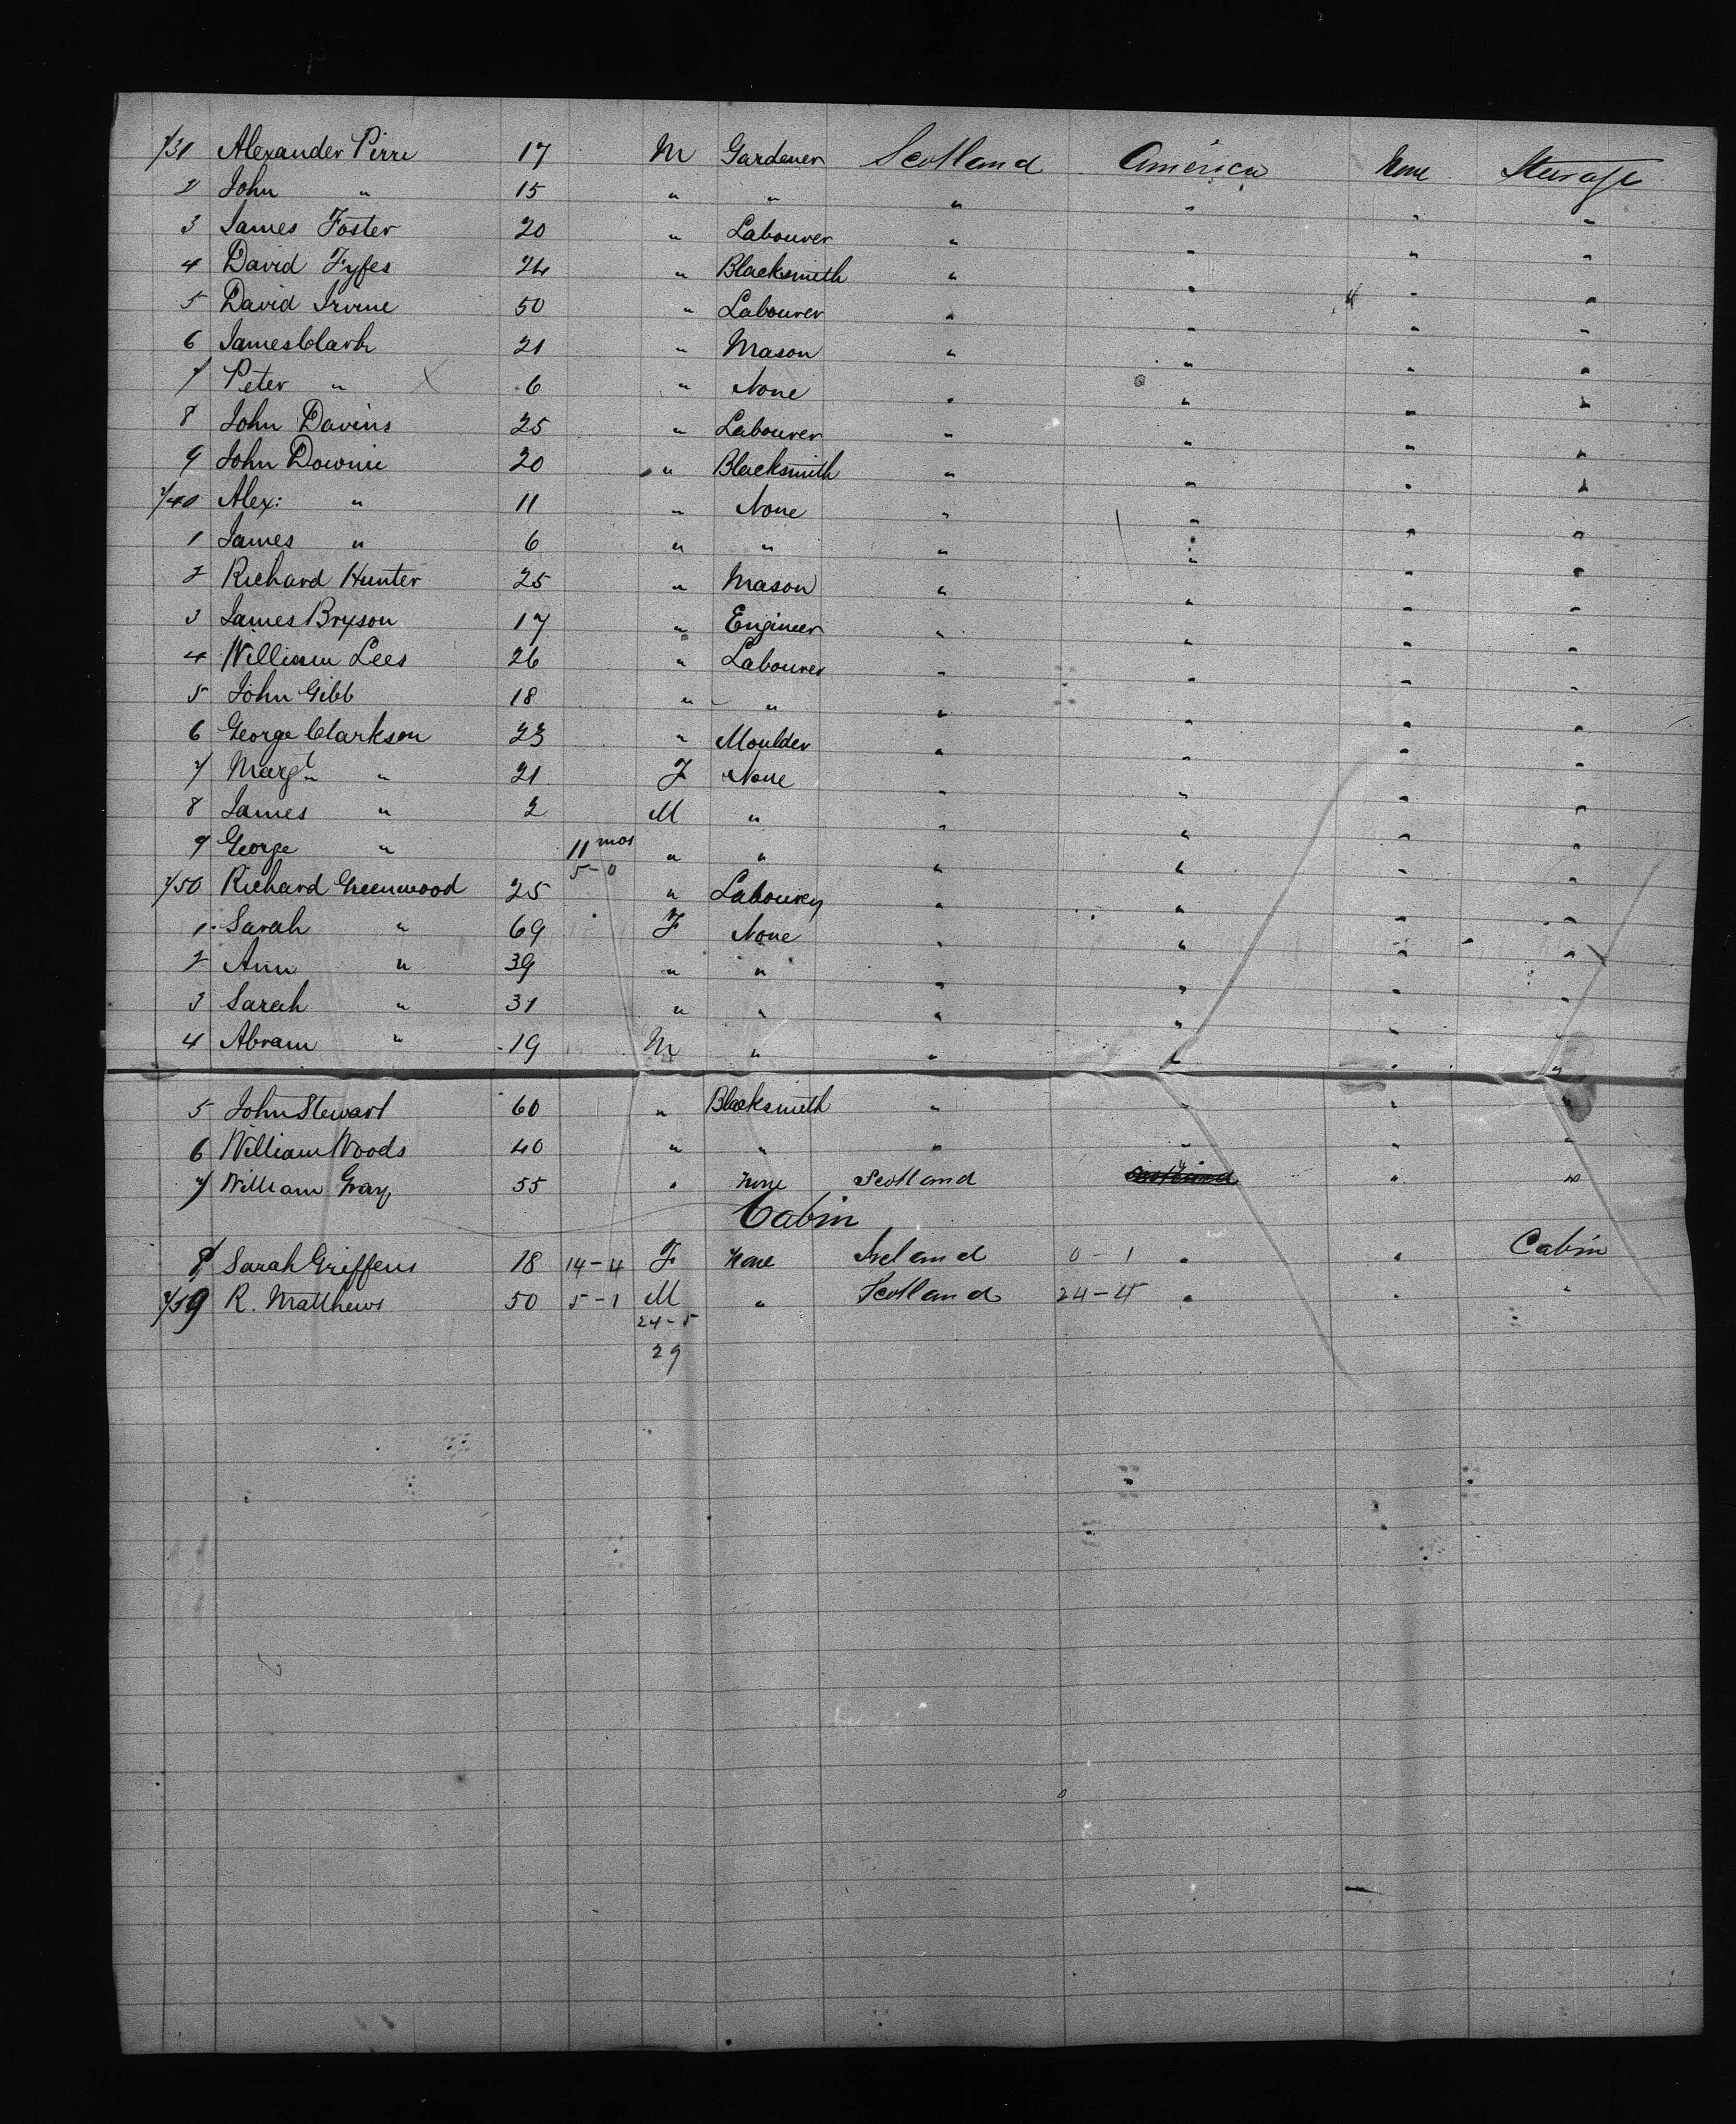 1/31 Alexander Pirri 17 M Gardener Scotland America None Steerage
2 John " 15 " " " " " "
3 James Foster 20 " Labourer " " " "
4 David Fyfes 24 " Blacksmith " " " "
5 David Irvine 50 " Labourer " " " "
6 James Clark 21 " Mason " " " "
7 Peter " X 6 " None " " " "
8 John Davins 25 " Labourer " " " "
9 John Downie 20 " Blacksmith " " " "
1/40 Alex: " 11 " None " " " "
1 James " 6 " " " " " "
2 Richard Hunter 25 " Mason " " " "
3 James Bryson 17 " Engineer " " " "
4 William Lees 26 " Labourer " " " "
5 John Gibb 18 " " " " " "
6 George Clarkson 23 " Moulder " " " "
7 Margt " 21 F None " " " "
8 James " 2 M " " " " "
9 George " 11 mos " " " " " "
5-0
1/50 Richard Greenwood 25 " Labourer " " " "
1 Sarah " 69 F None " " " "
2 Ann " 39 " " " " " "
3 Sarah " 31 " " " " " "
4 Abram " 19 M " " " " "
5 John Stewart 60 " Blacksmith " " " "
6 William Woods 40 " " " " " "
7 William Gray 55 " None Scotland " " "
Cabin
8 Sarah Griffens 18 14-4 F None Ireland 0-1 " " Cabin
1/59 R. Matthews 50 5-1 M " Scotland 24-4 " " "
24-5
29